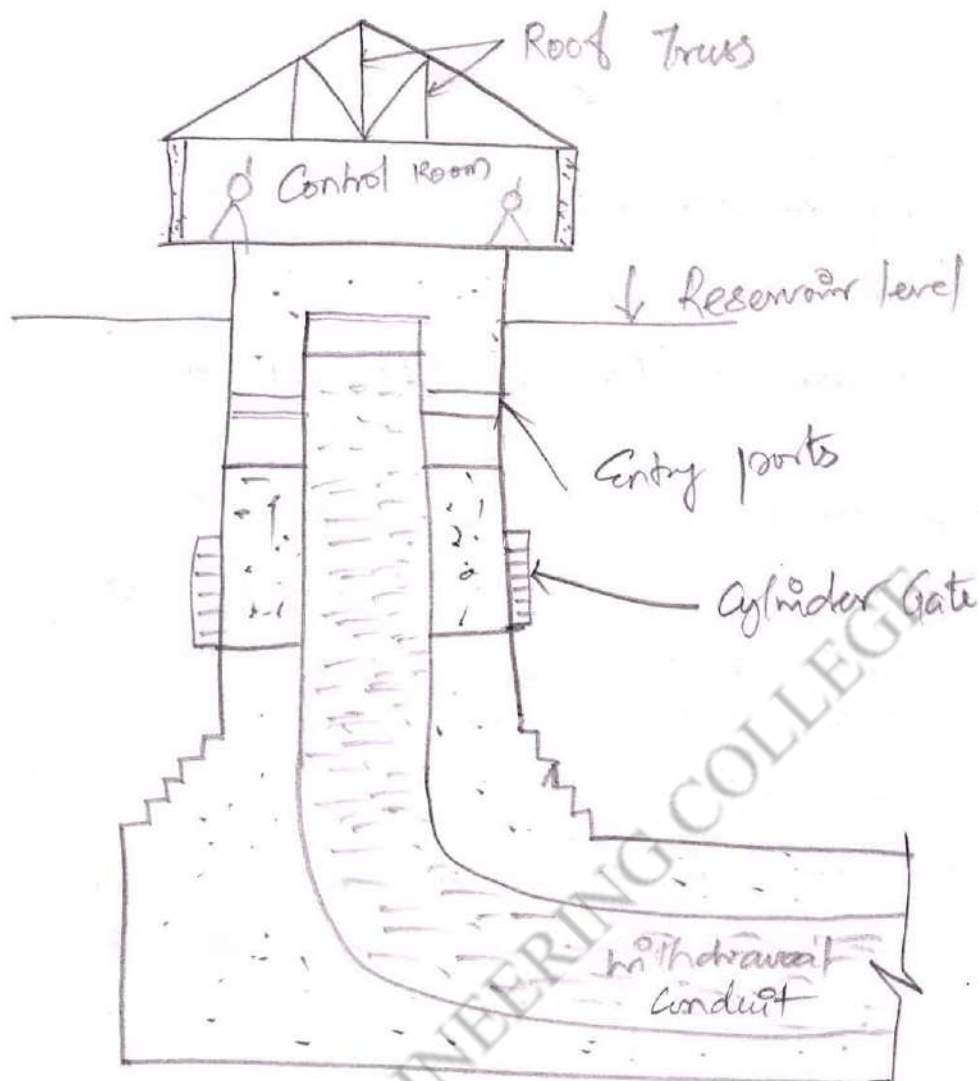 Roof Truss
Control Room
Reservoir level
Entry ports
Cylinder Gate
Withdrawal
Conduit
NEERING COLLEGE